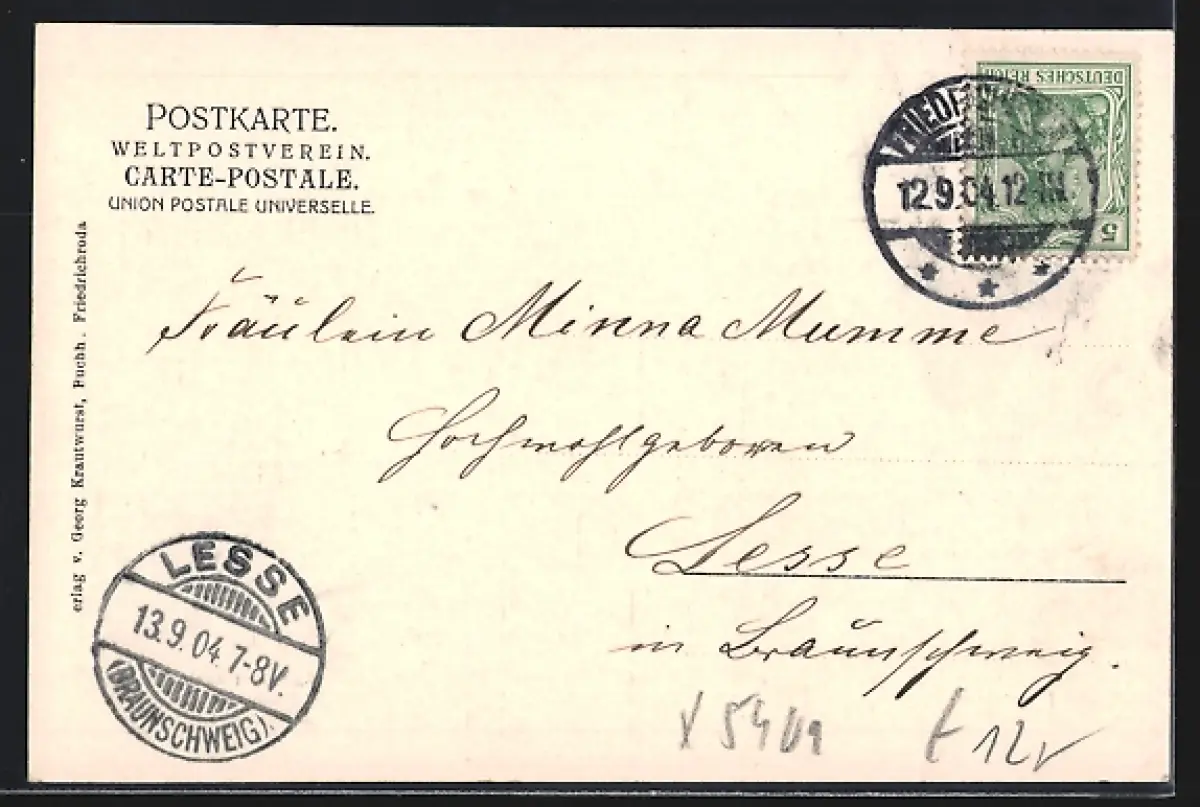 POSTKARTE.
WELTPOSTVEREIN.
CARTE-POSTALE.
UNION POSTALE UNIVERSELLE.
DEUTSCHES REICH
5
12.9.04.12-1N.
erlag v. Georg Krautwurst, Buchh. Friedrichroda
Fräulein Minna Mumme
Hochwohlgeboren
Lesse
in Braunschweig.
LESSE
13.9.04.7-8V.
(BRAUNSCHWEIG).